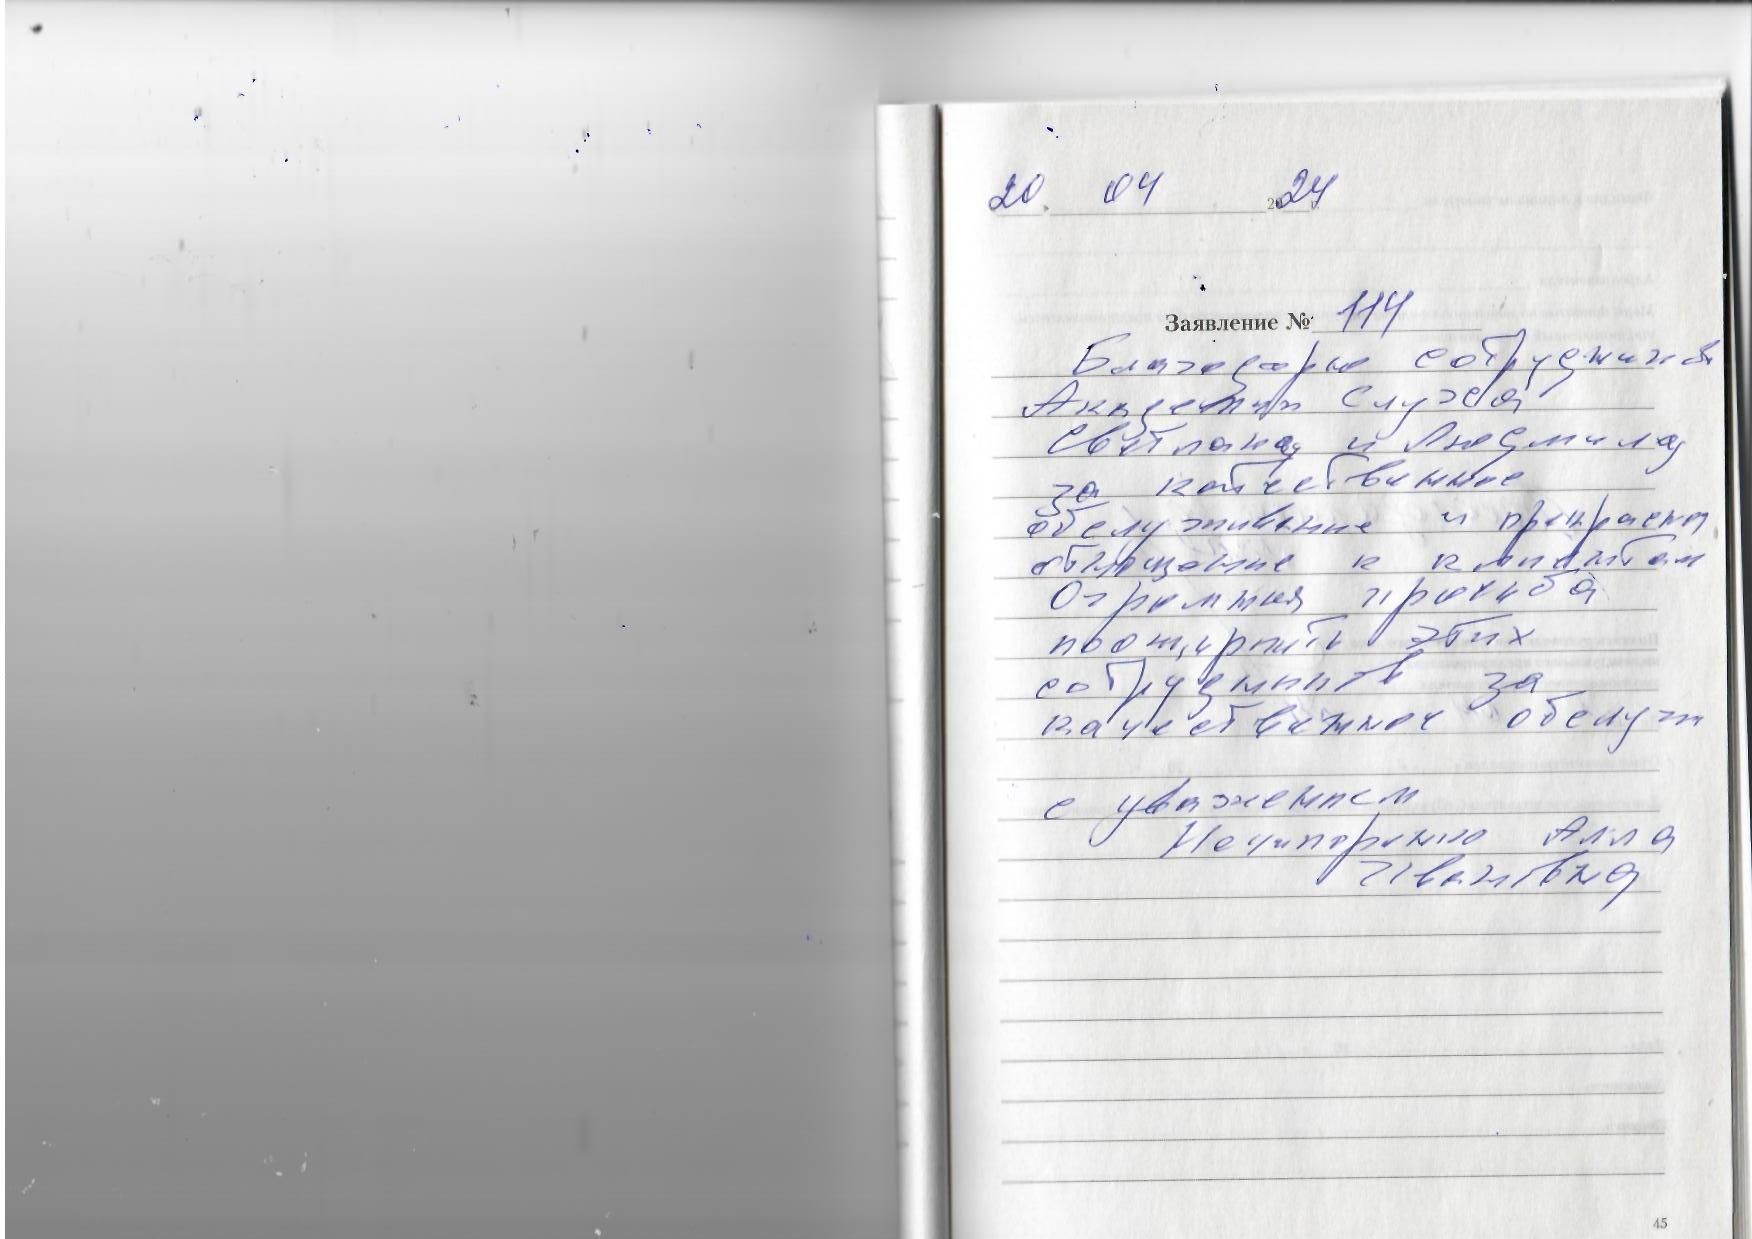 20. 04 2024 г.
Заявление № 114
Благодарю сотрудников
Академии Слуха
Светлану и Людмилу
за качественное
обслуживание и прекрасно
отношение к клиентам
Огромная просьба
поощирить этих
сотрудников за
качественное обслуж
с уважением
Нечипоренко Алла
Ивановна
45